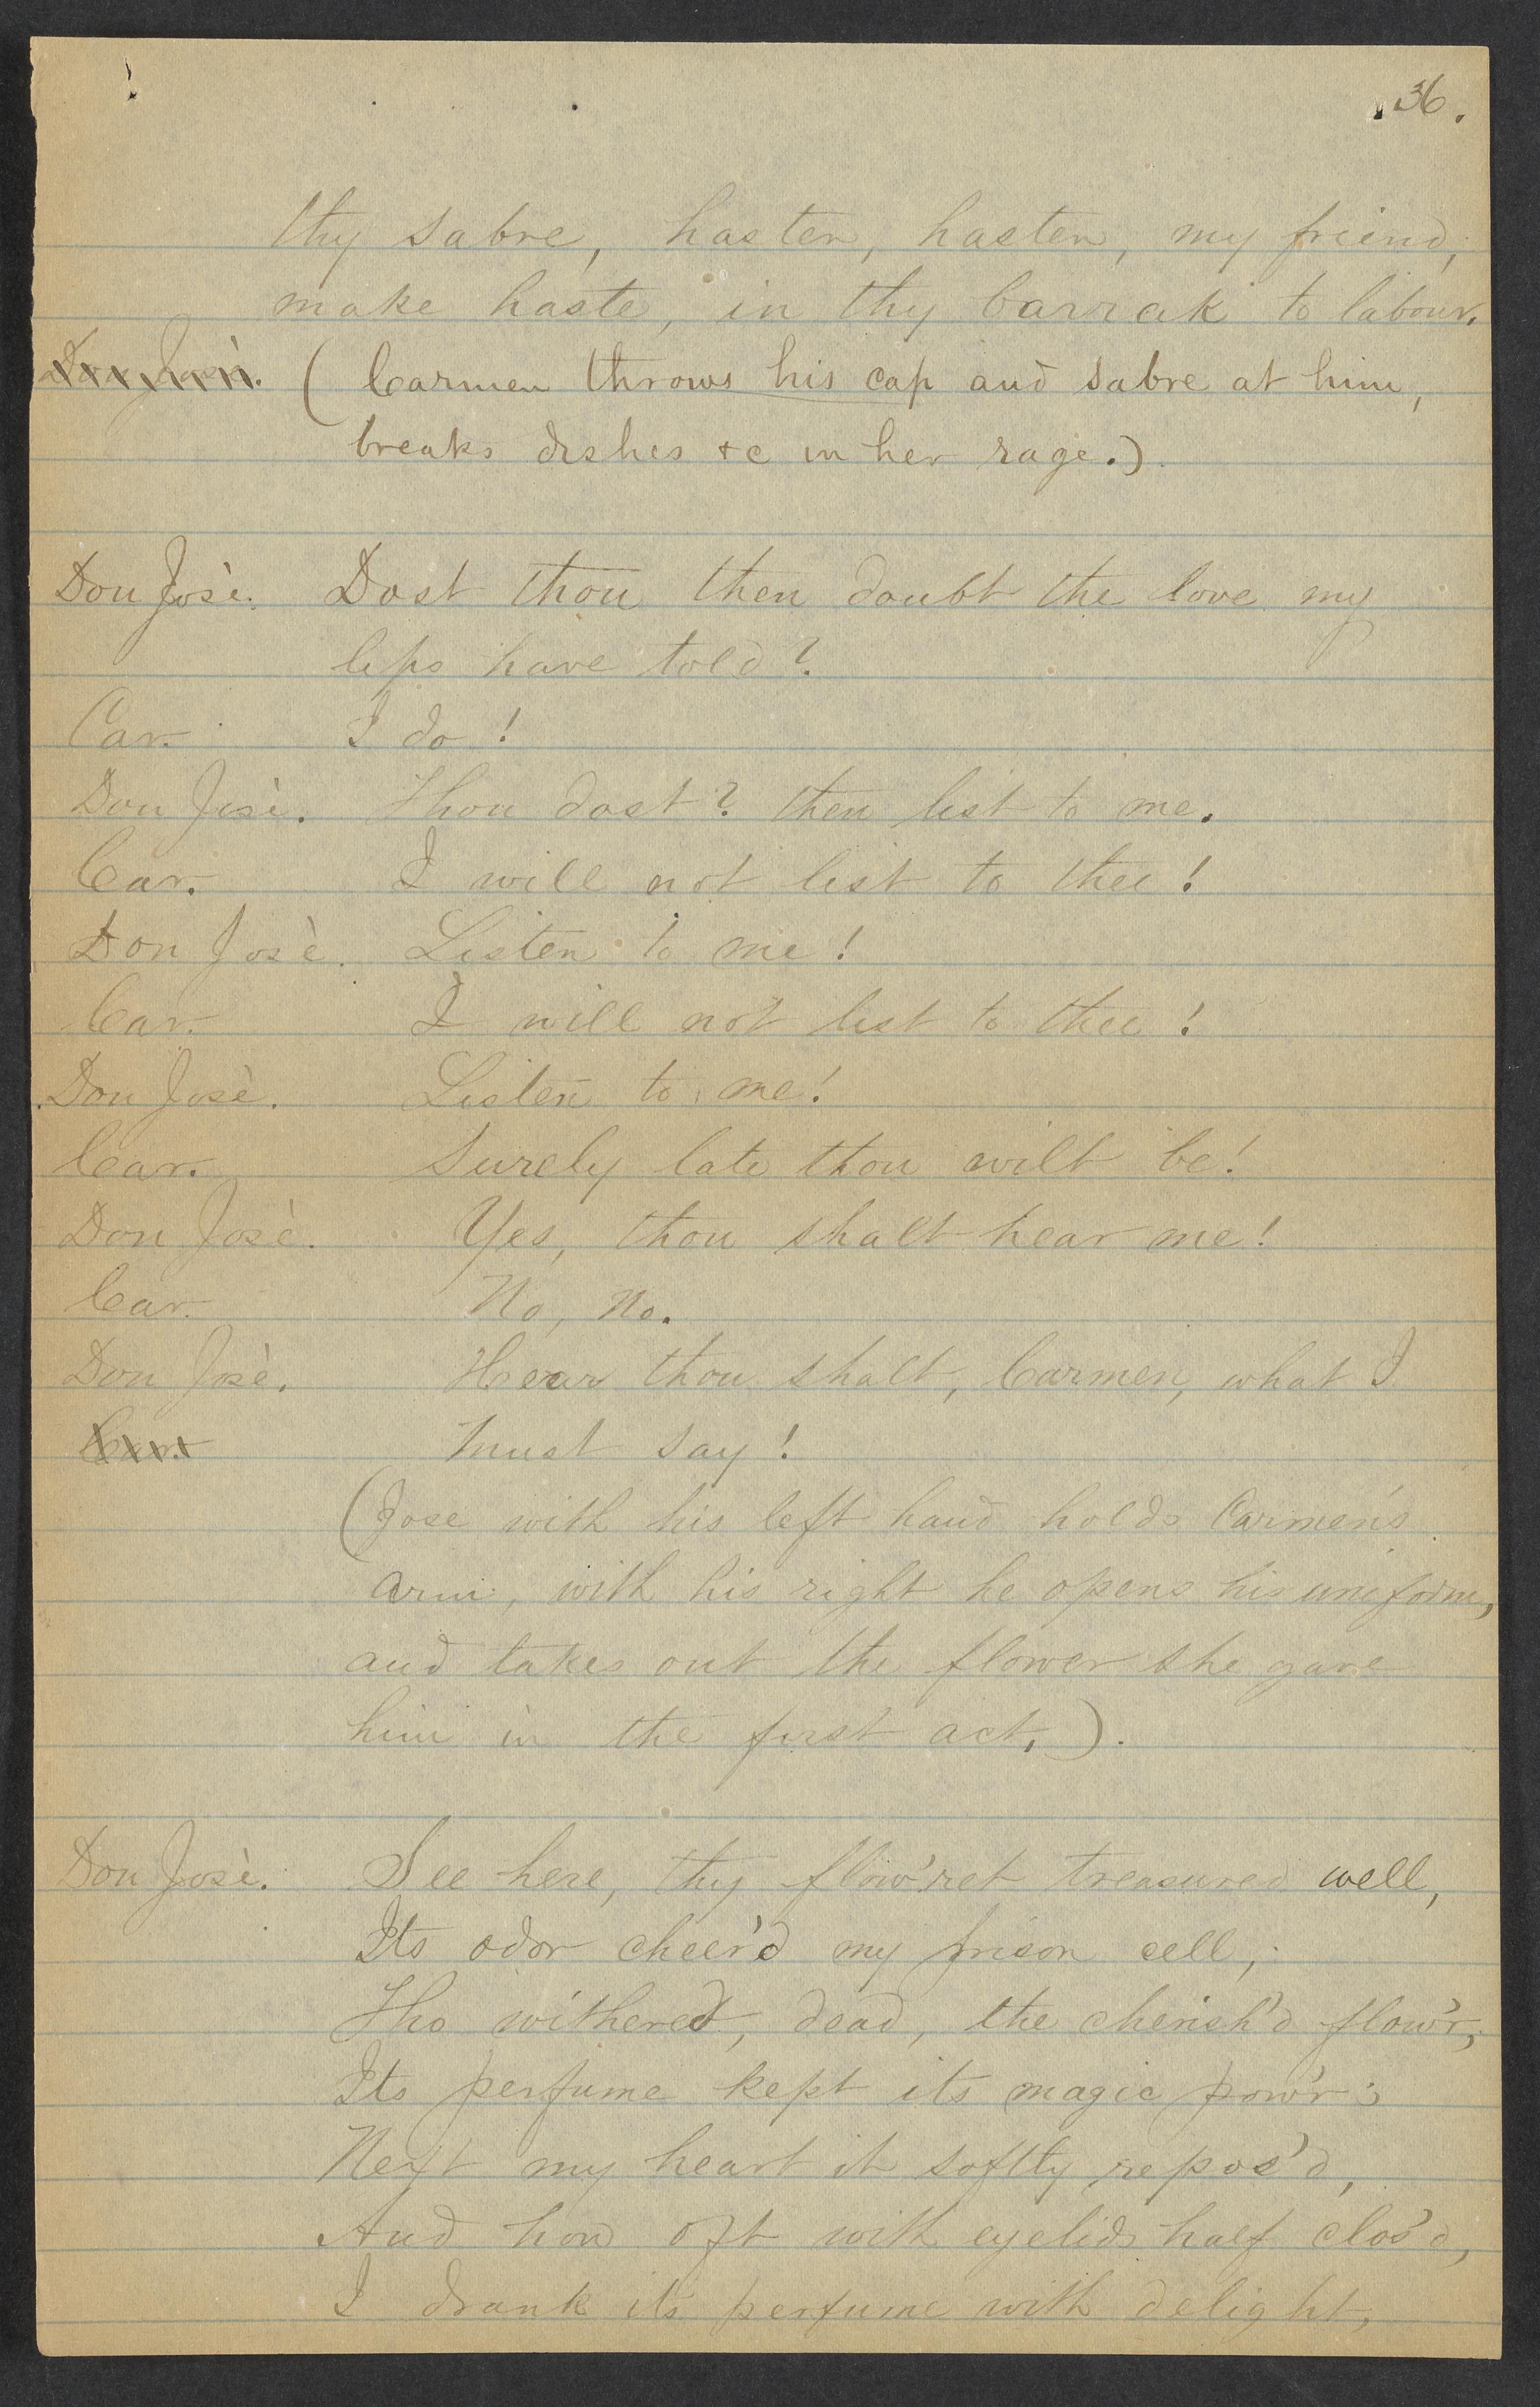 36.
thy sabre, hasten, hasten, my friend,
make haste, in thy barrak to labour.
Don Josè. (Carmen throws his cap and sabre at him,
breaks dishes &c in her rage.)
Don Josè. Dost thou then doubt the love my
lips have told?
Car. I do!
Don Josè. Thou dost? then list to me.
Car. I will not list to thee!
Don Josè. Listen to me!
Car. I will not list to thee!
Don Josè. Listen to me!
Car. Surely late thou wilt be!
Don Josè. Yes, thou shalt hear me!
Car. No, no.
Don Josè. Hear thou shalt, Carmen, what I
Car. must say!
(Jose with his left hand holds Carmen's
arm, with his right he opens his uniform,
and takes out the flower she gave
him in the first act.).
Don Josè. See here, thy flow'ret treasured well,
Its odor cheer'd my prison cell;
Tho withered, dead, the cherish'd flow'r,
Its perfume kept its magic pow'r;
Next my heart it softly repos'd,
And how oft with eyelids half clos'd,
I drank its perfume with delight,